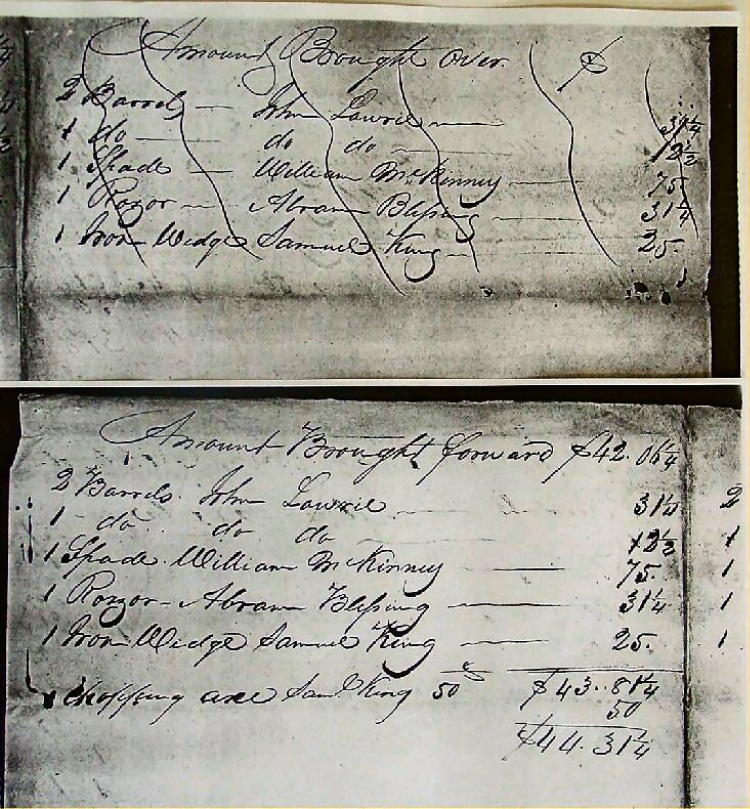 Amount Brought Over. $
2 Barrels — John Lawrie — 31¼
1 do — do do — 12½
1 Spade — William McKinney — 75
1 Rozor — Abram Blessing — 31¼
1 Iron Wedge Samuel King — 25.
Amount Brought forward $42. 06¼
2 Barrels. John Lawrie — 31¼
1 do do do — 12½
1 Spade. William McKinney — 75.
1 Rozor — Abram Blessing — 31¼
1 Iron Wedge Samuel King — 25.
chopping axe Saml. King 50 $43..81¼
50
$44. 31¼
2
1
1
1
1